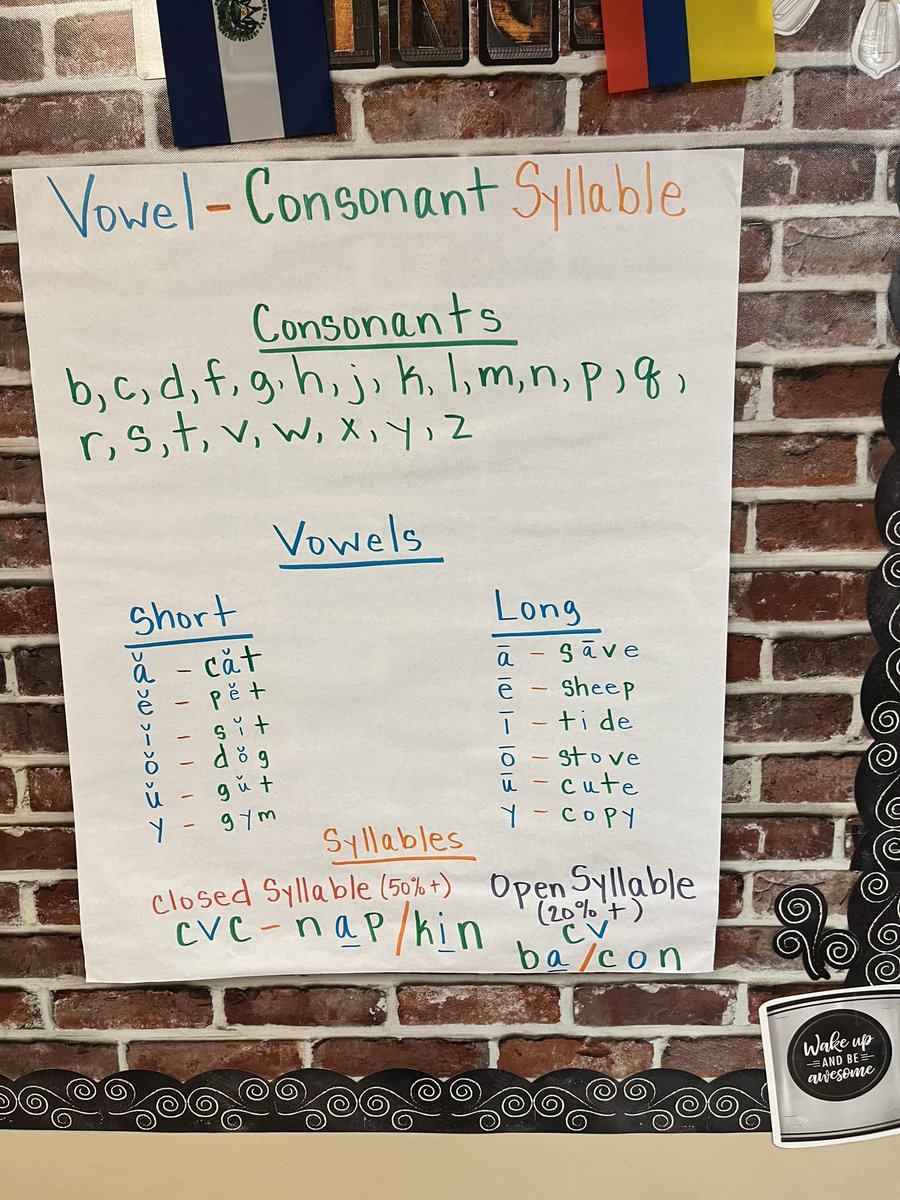 Vowel - Consonant Syllable
Consonants
b, c, d, f, g, h, j, k, l, m, n, p, q,
r, s, t, v, w, x, y, z
Vowels
Short
ă - căt
ĕ - pĕt
ĭ - sĭt
ŏ - dŏg
ŭ - gŭt
y - gym
Long
ā - sāve
ē - sheep
ī - tide
ō - stove
ū - cute
y - copy
Syllables
Closed Syllable (50%+)
cvc - nap/kin
Open Syllable
(20% +)
cv
ba/con
Wake up
AND BE
awesome